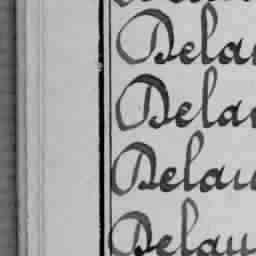 Dela
Dela
Delau
Delau